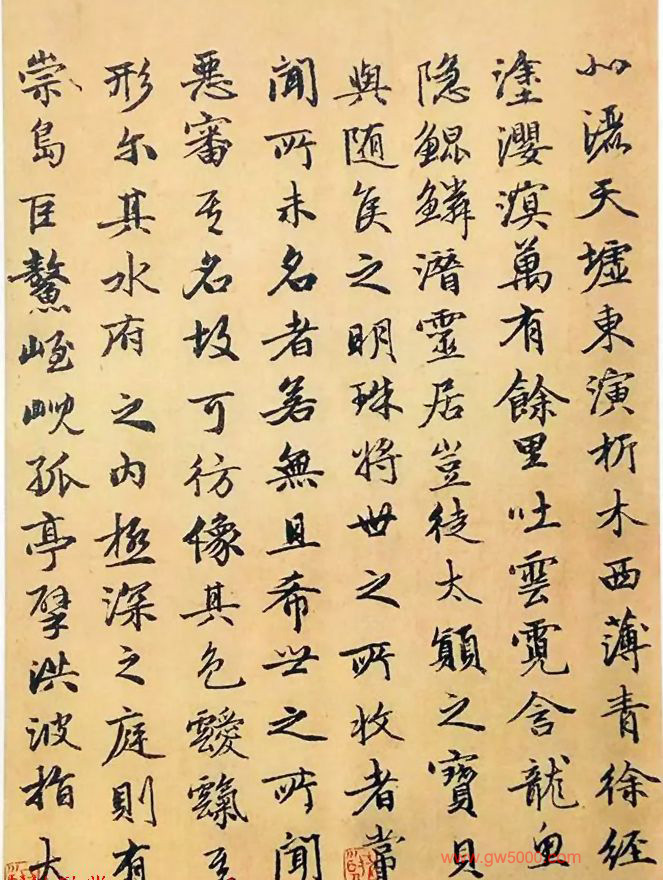 北灑天墟東演析木西薄青徐經
塗瀴溟萬有餘里吐雲霓含龍魚
隐鯤鱗潛靈居豈徒太顛之寶貝
與随侯之明珠將世之所收者常
聞所未名者若無且希世之所聞
惡審其名故可彷像其色靉霼其
形尔其水府之内極深之庭則有
崇島巨鰲峌峴孤亭擘洪波指太
www.gw5000.com